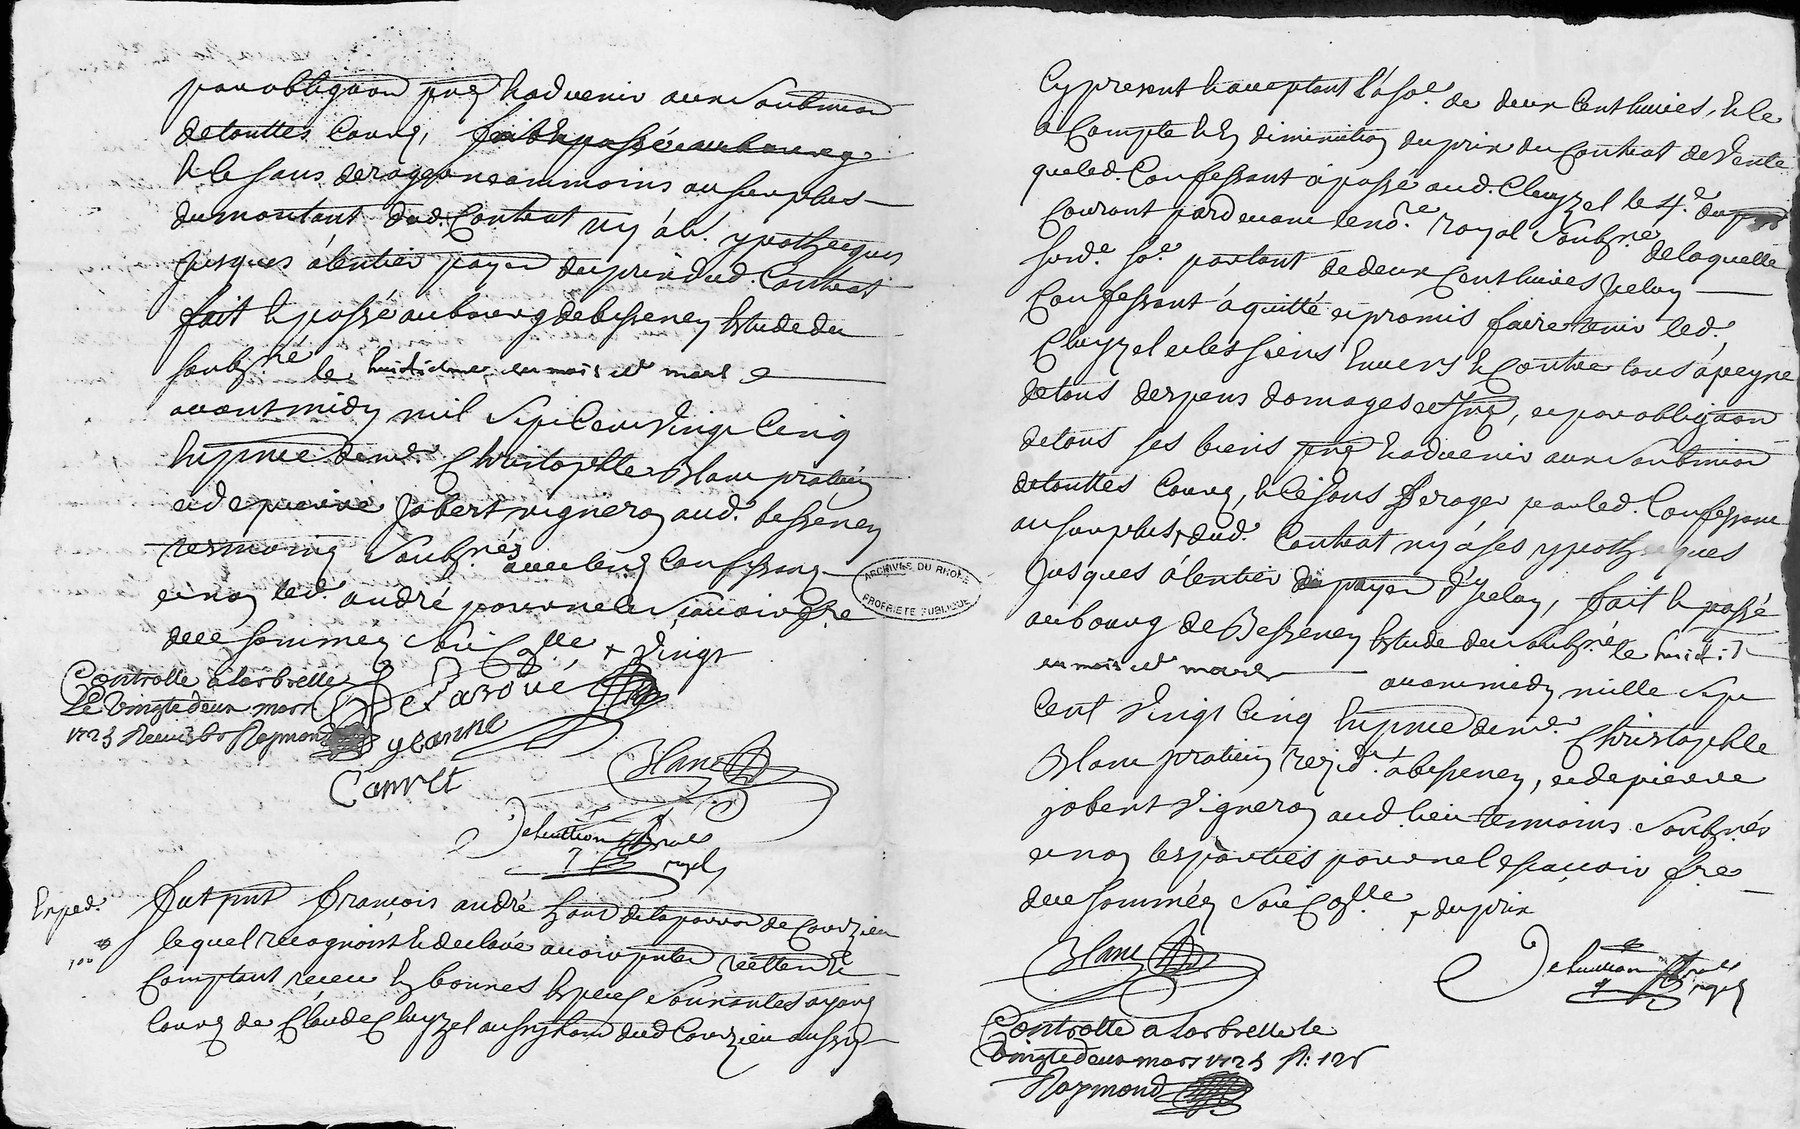 par obligaon pnt & advenir avec soubmion
de touttes cours, fait & passé au bourg
& le sans deroger neammoins au surplus
du montant dud. Contrat ny à la. ypotheques
jusques à lentier payem du prix dud. Contrat
fait & passé au bourg de besseney Estude du
soubsné le huictieme du mois de mars
avant midy mil sept cent vingt cinq
En pnce de me. Christophle Blanc praticien
et de pierre Jobert vigneron aud. bessenay
tesmoins soubsnés avec les Confessans
et non led. andré pour ne le scavoir fre
de ce sommé soit Collé + vingt
Controllé à larbrelle
Le vingtedeux mars
1725 Receu Raymond
De Laroüé
yeanne
Canrett
Blanc
Dehuction
royal
Exped.
100
fut pnt françois andré habt. de la parroe de Courzieu
lequel recognoist & declare avoir reellemt
Comptant receu En bonnes Especes sonnantes ayant
Cours de Claude Cluyzel aussy habt dud Courzieu aussy
Cy present & acceptant la so.e de deux Cent livres, & ce
a Compte & En diminution du prix du Contrat de vente
que led. Confessant à passé aud. Cluyzel le 4.e du pnt
Courant pardevant le no.re royal soubsné de laquelle
susd.e so.e partant de deux Cent livres Jceluy
Confessant à quitté et promis faire tenir led.
Cluyzel et les siens Envers & Contre tous à peyne
de tous despens domages et Jnts, et par obligaon
de tous ses biens pnts & advenir avec soubmion
de touttes Cours, & ce sans deroger par led. Confessant
au surplus + dud. Contrat ny à ses ypotheques
Jusques à lentier payem d'Jceluy, fait & passé
au bourg de Bessenay Estude du soubsné le huict
du mois de mars avant midy mille sept
Cent vingt Cinq En pnce de me. Christophle
Blanc praticien resid. à bessenay, et de pierre
jobert vigneron aud. lieu temoins soubsnés
et non les parties pour ne le sçavoir fre
de ce sommés soit Collé + du prix
Blanc
Dehuction
royal
Controllé a larbrelle le
vingtedeux mars 1725 R: 12s
Raymond
ARCHIVES DU RHONE
PROPRIETE PUBLIQUE